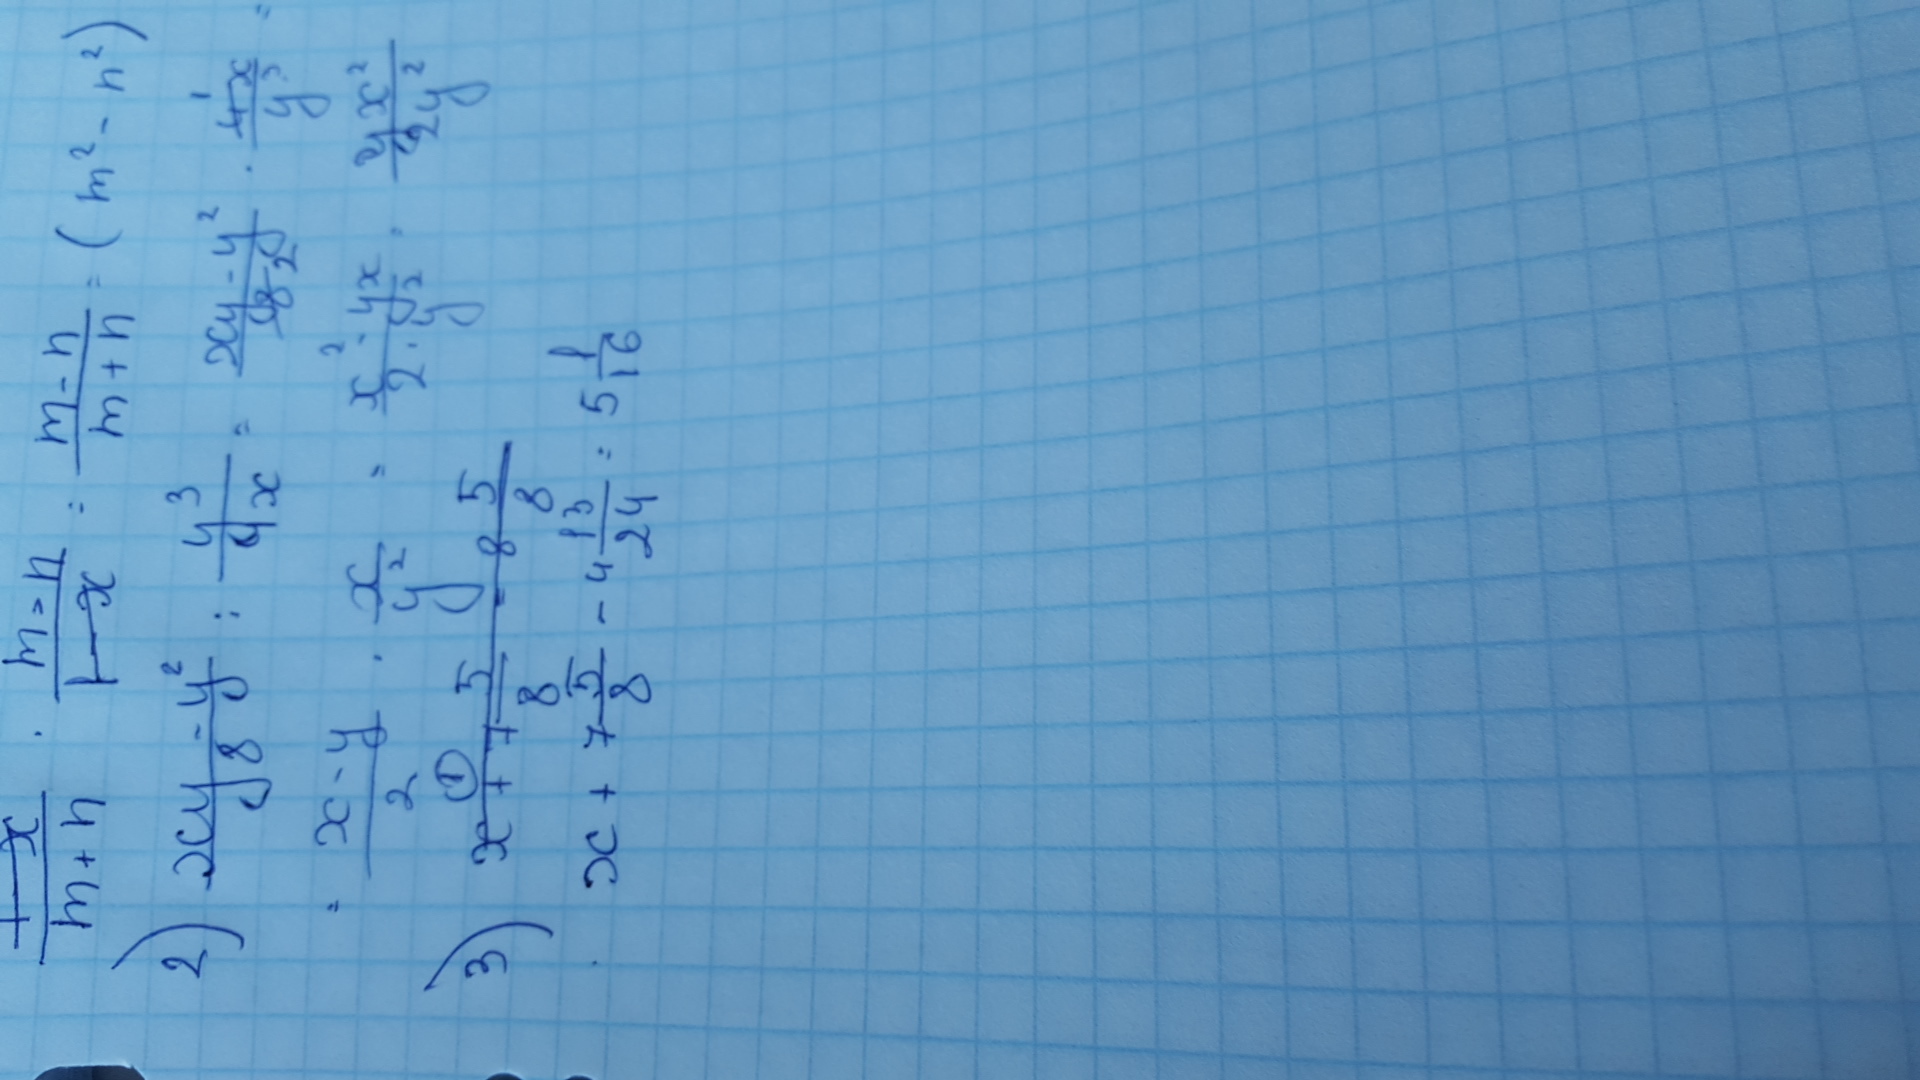 x/(m+n) · (m-n)/x = (m-n)/(m+n) = (m² - n²)
2) (xy - y²)/8 : y³/(4x) = (xy - y²)/(8 2) · (4x 1)/y³ =
= (x - y)/2 · x/y² = (x² · yx)/(2 · y²) · yx²/(2y²)
3) x + 7 5/8 - 8 5/8
x + 7 5/8 - 4 13/24 = 5 1/16